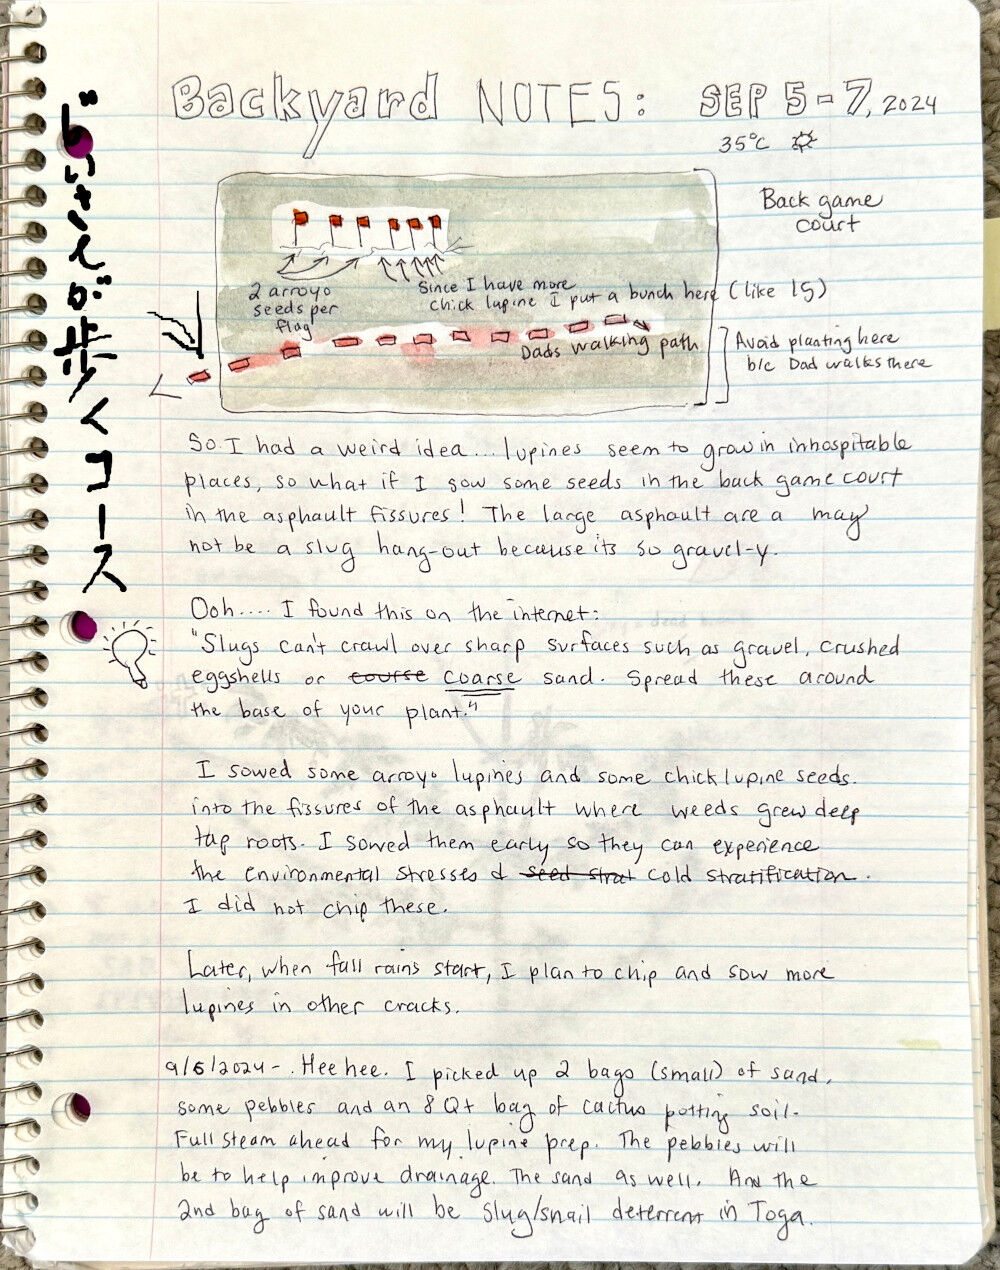 Backyard NOTES: SEP 5-7, 2024
35°C
Back game
court
2 arroyo
seeds per
flag
Since I have more
chick lupine I put a bunch here (like 15)
Dads walking path
Avoid planting here
b/c Dad walks there
が歩くコース
So I had a weird idea... lupines seem to grow in inhospitable
places, so what if I sow some seeds in the back game court
in the asphault fissures! The large asphault are a may
not be a slug hang-out because its so gravel-y.
Ooh.... I found this on the internet:
"Slugs can't crawl over sharp surfaces such as gravel, crushed
eggshells or course coarse sand. Spread these around
the base of your plant."
I sowed some arroyo lupines and some chick lupine seeds.
into the fissures of the asphault where weeds grew deep
tap roots. I sowed them early so they can experience
the environmental stresses & seed strat cold stratification.
I did not chip these.
Later, when fall rains start, I plan to chip and sow more
lupines in other cracks.
9/6/2024-. Hee hee. I picked up 2 bags (small) of sand,
some pebbles and an 8 Qt bag of cactus potting soil.
Full steam ahead for my lupine prep. The pebbles will
be to help improve drainage. The sand as well. And the
2nd bag of sand will be slug/snail deterrent in Toga.